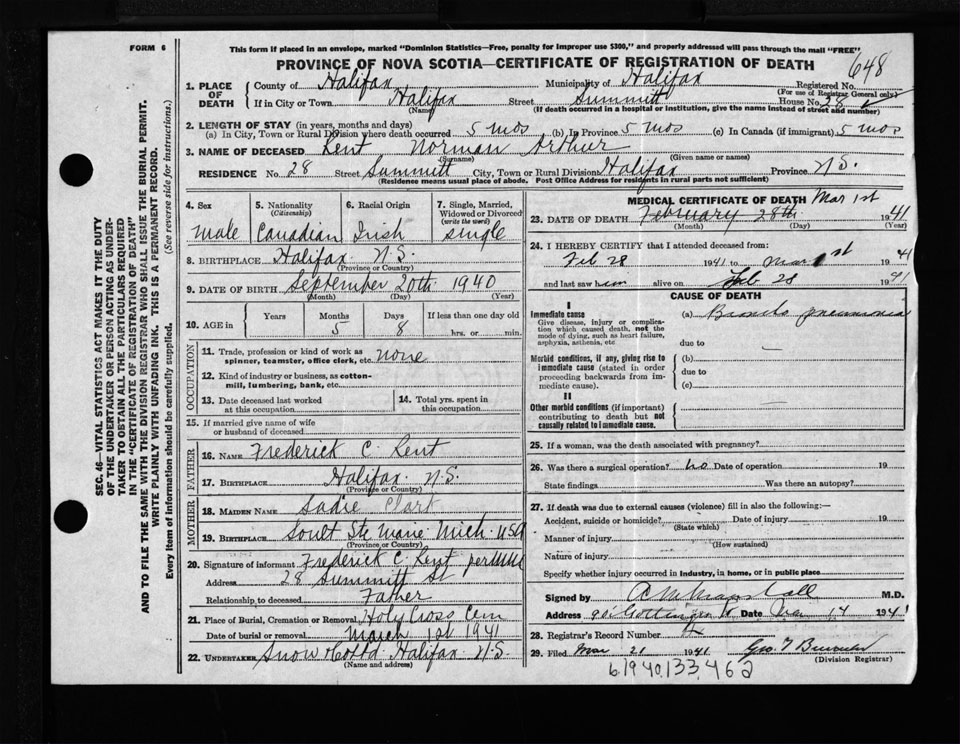 FORM 6
This form if placed in an envelope, marked "Dominion Statistics—Free, penalty for improper use $300," and properly addressed will pass through the mail "FREE"
PROVINCE OF NOVA SCOTIA—CERTIFICATE OF REGISTRATION OF DEATH
648
1. PLACE OF DEATH
County of Halifax Municipality of Halifax Registered No.
(For use of Registrar General only)
If in City or Town Halifax Street Summitt House No. 28
(Name) (If death occurred in a hospital or institution, give the name instead of street and number)
2. LENGTH OF STAY (in years, months and days)
(a) In City, Town or Rural Division where death occurred 5 mos (b) In Province 5 mos (c) In Canada (if immigrant) 5 mos
3. NAME OF DECEASED Kent Norman Arthur
(Surname) (Given name or names)
RESIDENCE No. 28 Street Summitt City, Town or Rural Division Halifax Province N.S.
(Residence means usual place of abode. Post Office Address for residents in rural parts not sufficient)
4. Sex
male
5. Nationality
(Citizenship)
Canadian
6. Racial Origin
Irish
7. Single, Married, Widowed or Divorced
(write the word)
single
8. BIRTHPLACE Halifax N.S.
(Province or Country)
9. DATE OF BIRTH September 20th 1940
(Month) (Day) (Year)
10. AGE in
Years Months Days If less than one day old
5 8 hrs. or min.
OCCUPATION
11. Trade, profession or kind of work as
spinner, teamster, office clerk, etc. none
12. Kind of industry or business, as cotton-
mill, lumbering, bank, etc.
13. Date deceased last worked
at this occupation
14. Total yrs. spent in
this occupation
15. If married give name of wife
or husband of deceased
FATHER
16. NAME Frederick C. Kent
17. BIRTHPLACE Halifax N.S.
(Province or Country)
MOTHER
18. MAIDEN NAME Sadie Clart
19. BIRTHPLACE Soult Ste Marie Mich USA
(Province or Country)
20. Signature of informant Frederick C. Kent per
Address 28 Summitt St
Relationship to deceased Father
21. Place of Burial, Cremation or Removal Holy Cross Cem
Date of burial or removal March 1st 1941
22. UNDERTAKER Snow & Co Ltd Halifax N.S.
(Name and address)
MEDICAL CERTIFICATE OF DEATH Mar 1st
23. DATE OF DEATH February 28th 1941
(Month) (Day) (Year)
24. I HEREBY CERTIFY that I attended deceased from:
Feb 28 1941 to Mar 1st 1941
and last saw him alive on Feb 28 1941
CAUSE OF DEATH
I
Immediate cause
Give disease, injury or complication which caused death, not the mode of dying, such as heart failure, asphyxia, asthenia, etc.
(a) Broncho pneumonia
due to
Morbid conditions, if any, giving rise to immediate cause (stated in order proceeding backwards from immediate cause).
(b)
due to
(c)
II
Other morbid conditions (if important) contributing to death but not causally related to immediate cause.
25. If a woman, was the death associated with pregnancy?
26. Was there a surgical operation? no Date of operation 19
State findings Was there an autopsy?
27. If death was due to external causes (violence) fill in also the following:—
Accident, suicide or homicide? Date of injury 19
(State which)
Manner of injury
(How sustained)
Nature of injury
Specify whether injury occurred in industry, in home, or in public place
Signed by M.D.
Address Gottingen St Date 14 1941
28. Registrar's Record Number
29. Filed Mar 21 1941 Geo.
(Division Registrar)
6.1940.133.462
SEC. 46—VITAL STATISTICS ACT MAKES IT THE DUTY
OF THE UNDERTAKER OR PERSON ACTING AS UNDER-
TAKER TO OBTAIN ALL THE PARTICULARS REQUIRED
IN THE "CERTIFICATE OF REGISTRATION OF DEATH"
AND TO FILE THE SAME WITH THE DIVISION REGISTRAR WHO SHALL ISSUE THE BURIAL PERMIT.
WRITE PLAINLY WITH UNFADING INK. THIS IS A PERMANENT RECORD.
Every item of information should be carefully supplied. (See reverse side for instructions.)